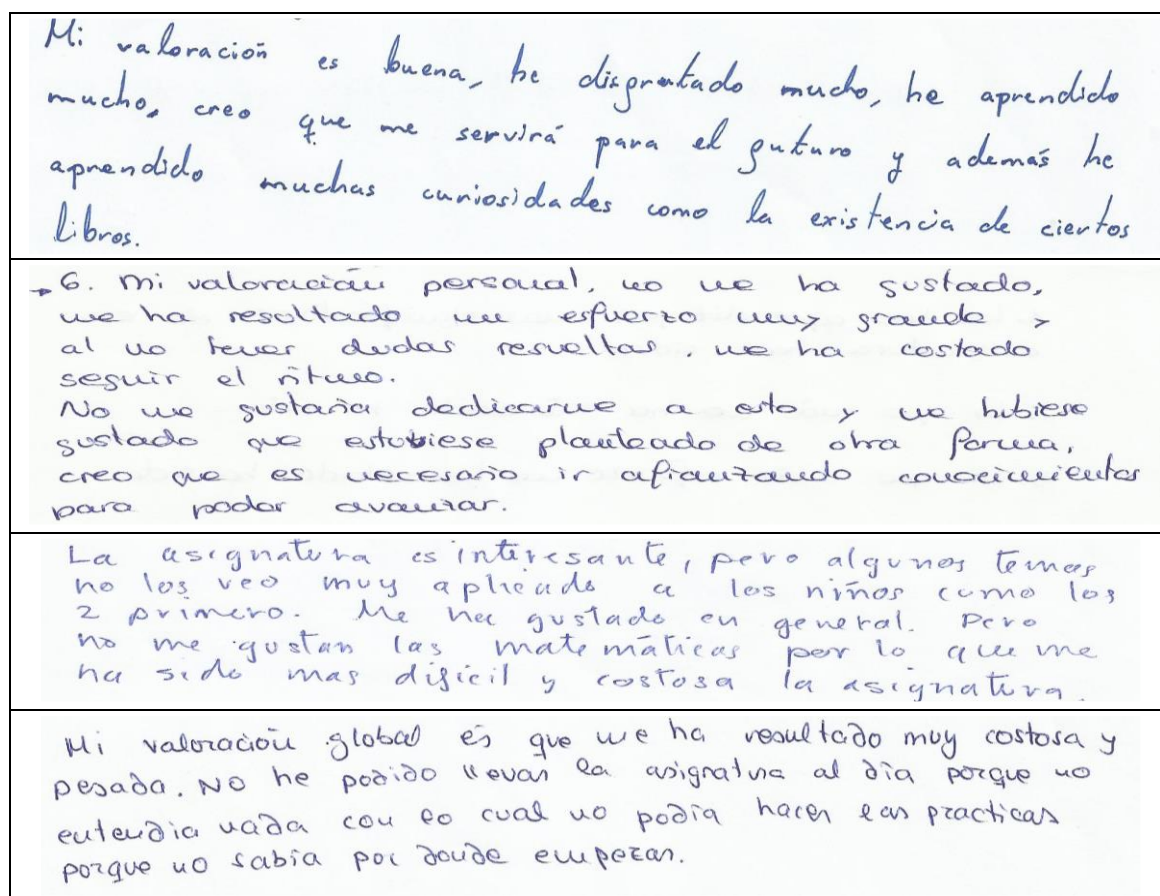 Mi valoración es buena, he disfrutado mucho, he aprendido
mucho, creo que me servirá para el futuro y además he
aprendido muchas curiosidades como la existencia de ciertos
libros.
→ 6. Mi valoración personal, no me ha gustado,
me ha resultado un esfuerzo muy grande y
al no tener dudas resueltas, me ha costado
seguir el ritmo.
No me gustaría dedicarme a esto y me hubiese
gustado que estubiese planteado de otra forma,
creo que es necesario ir afianzando conocimientos
para poder avanzar.
La asignatura es interesante, pero algunos temas
no los veo muy aplicado a los niños como los
2 primero. Me ha gustado en general. Pero
no me gustan las matemáticas por lo que me
ha sido mas difícil y costosa la asignatura.
Mi valoración global es que me ha resultado muy costosa y
pesada. No he podido llevar la asignatura al día porque no
entendia nada con lo cual no podía hacer las practicas
porque no sabía por donde empezar.